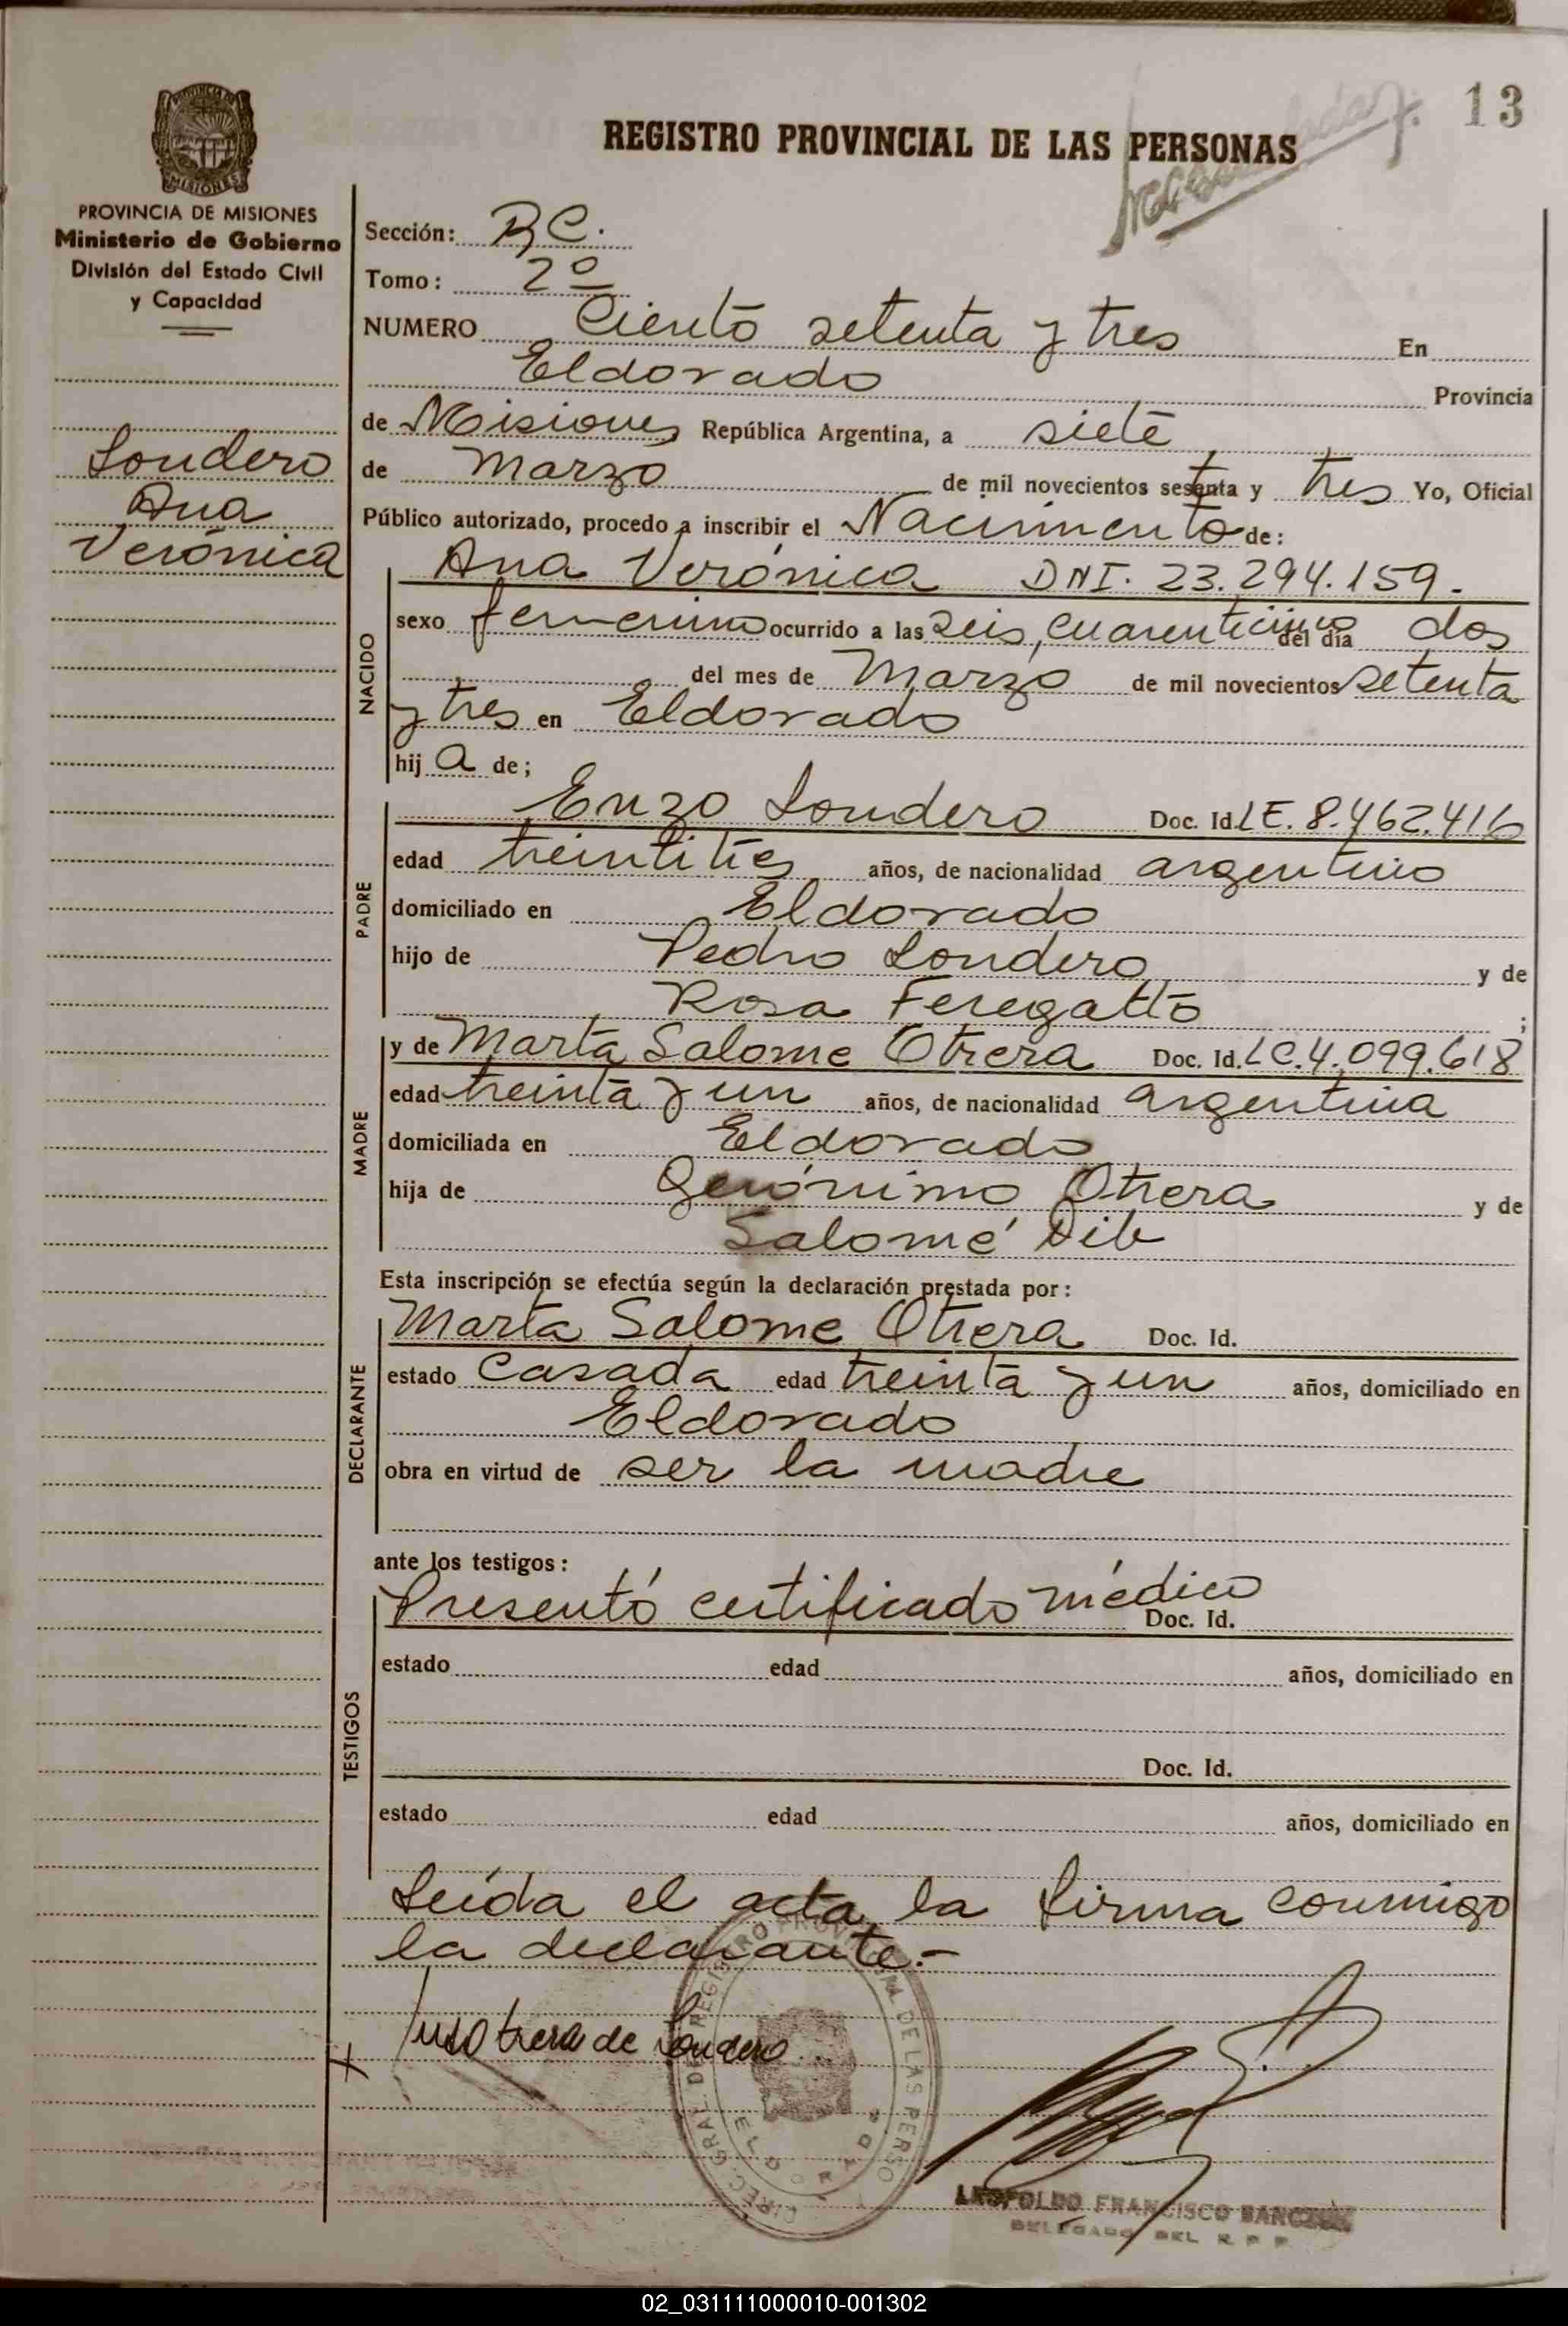 13
REGISTRO PROVINCIAL DE LAS PERSONAS
MISIONES
PROVINCIA DE MISIONES
Ministerio de Gobierno
División del Estado Civil
y Capacidad
Londero
Ana
Verónica
Sección: RC.
Tomo: 2º
NUMERO Ciento setenta y tres En
Eldorado Provincia
de Misiones República Argentina, a siete
de Marzo de mil novecientos setenta y tres Yo, Oficial
Público autorizado, procedo a inscribir el Nacimiento de:
NACIDO
Ana Verónica DNI. 23.294.159.-
sexo femenino ocurrido a las seis, cuarenticinco del día dos
del mes de Marzo de mil novecientos setenta
y tres en Eldorado
hij a de;
PADRE
Enzo Londero Doc. Id. LE. 8.462.416
edad treintitres años, de nacionalidad argentino
domiciliado en Eldorado
hijo de Pedro Londero y de
Rosa Feregatto ;
MADRE
y de Marta Salome Otrera Doc. Id. LC. 4.099.618
edad treinta y un años, de nacionalidad argentina
domiciliada en Eldorado
hija de Gerónimo Otrera y de
Salomé Dib
Esta inscripción se efectúa según la declaración prestada por:
DECLARANTE
Marta Salome Otrera Doc. Id.
estado casada edad treinta y un años, domiciliado en
Eldorado
obra en virtud de ser la madre
ante los testigos:
TESTIGOS
Presentó certificado médico Doc. Id.
estado edad años, domiciliado en
Doc. Id.
estado edad años, domiciliado en
Leída el acta, la firma conmigo
la declarante.-
Otrera de Londero
DIREC. GRAL. DEL REGISTRO PROVINCIAL DE LAS PERSO
ELDORADO
LEOPOLDO FRANCISCO
DELEGADO DEL R. P. P.
02_031111000010-001302